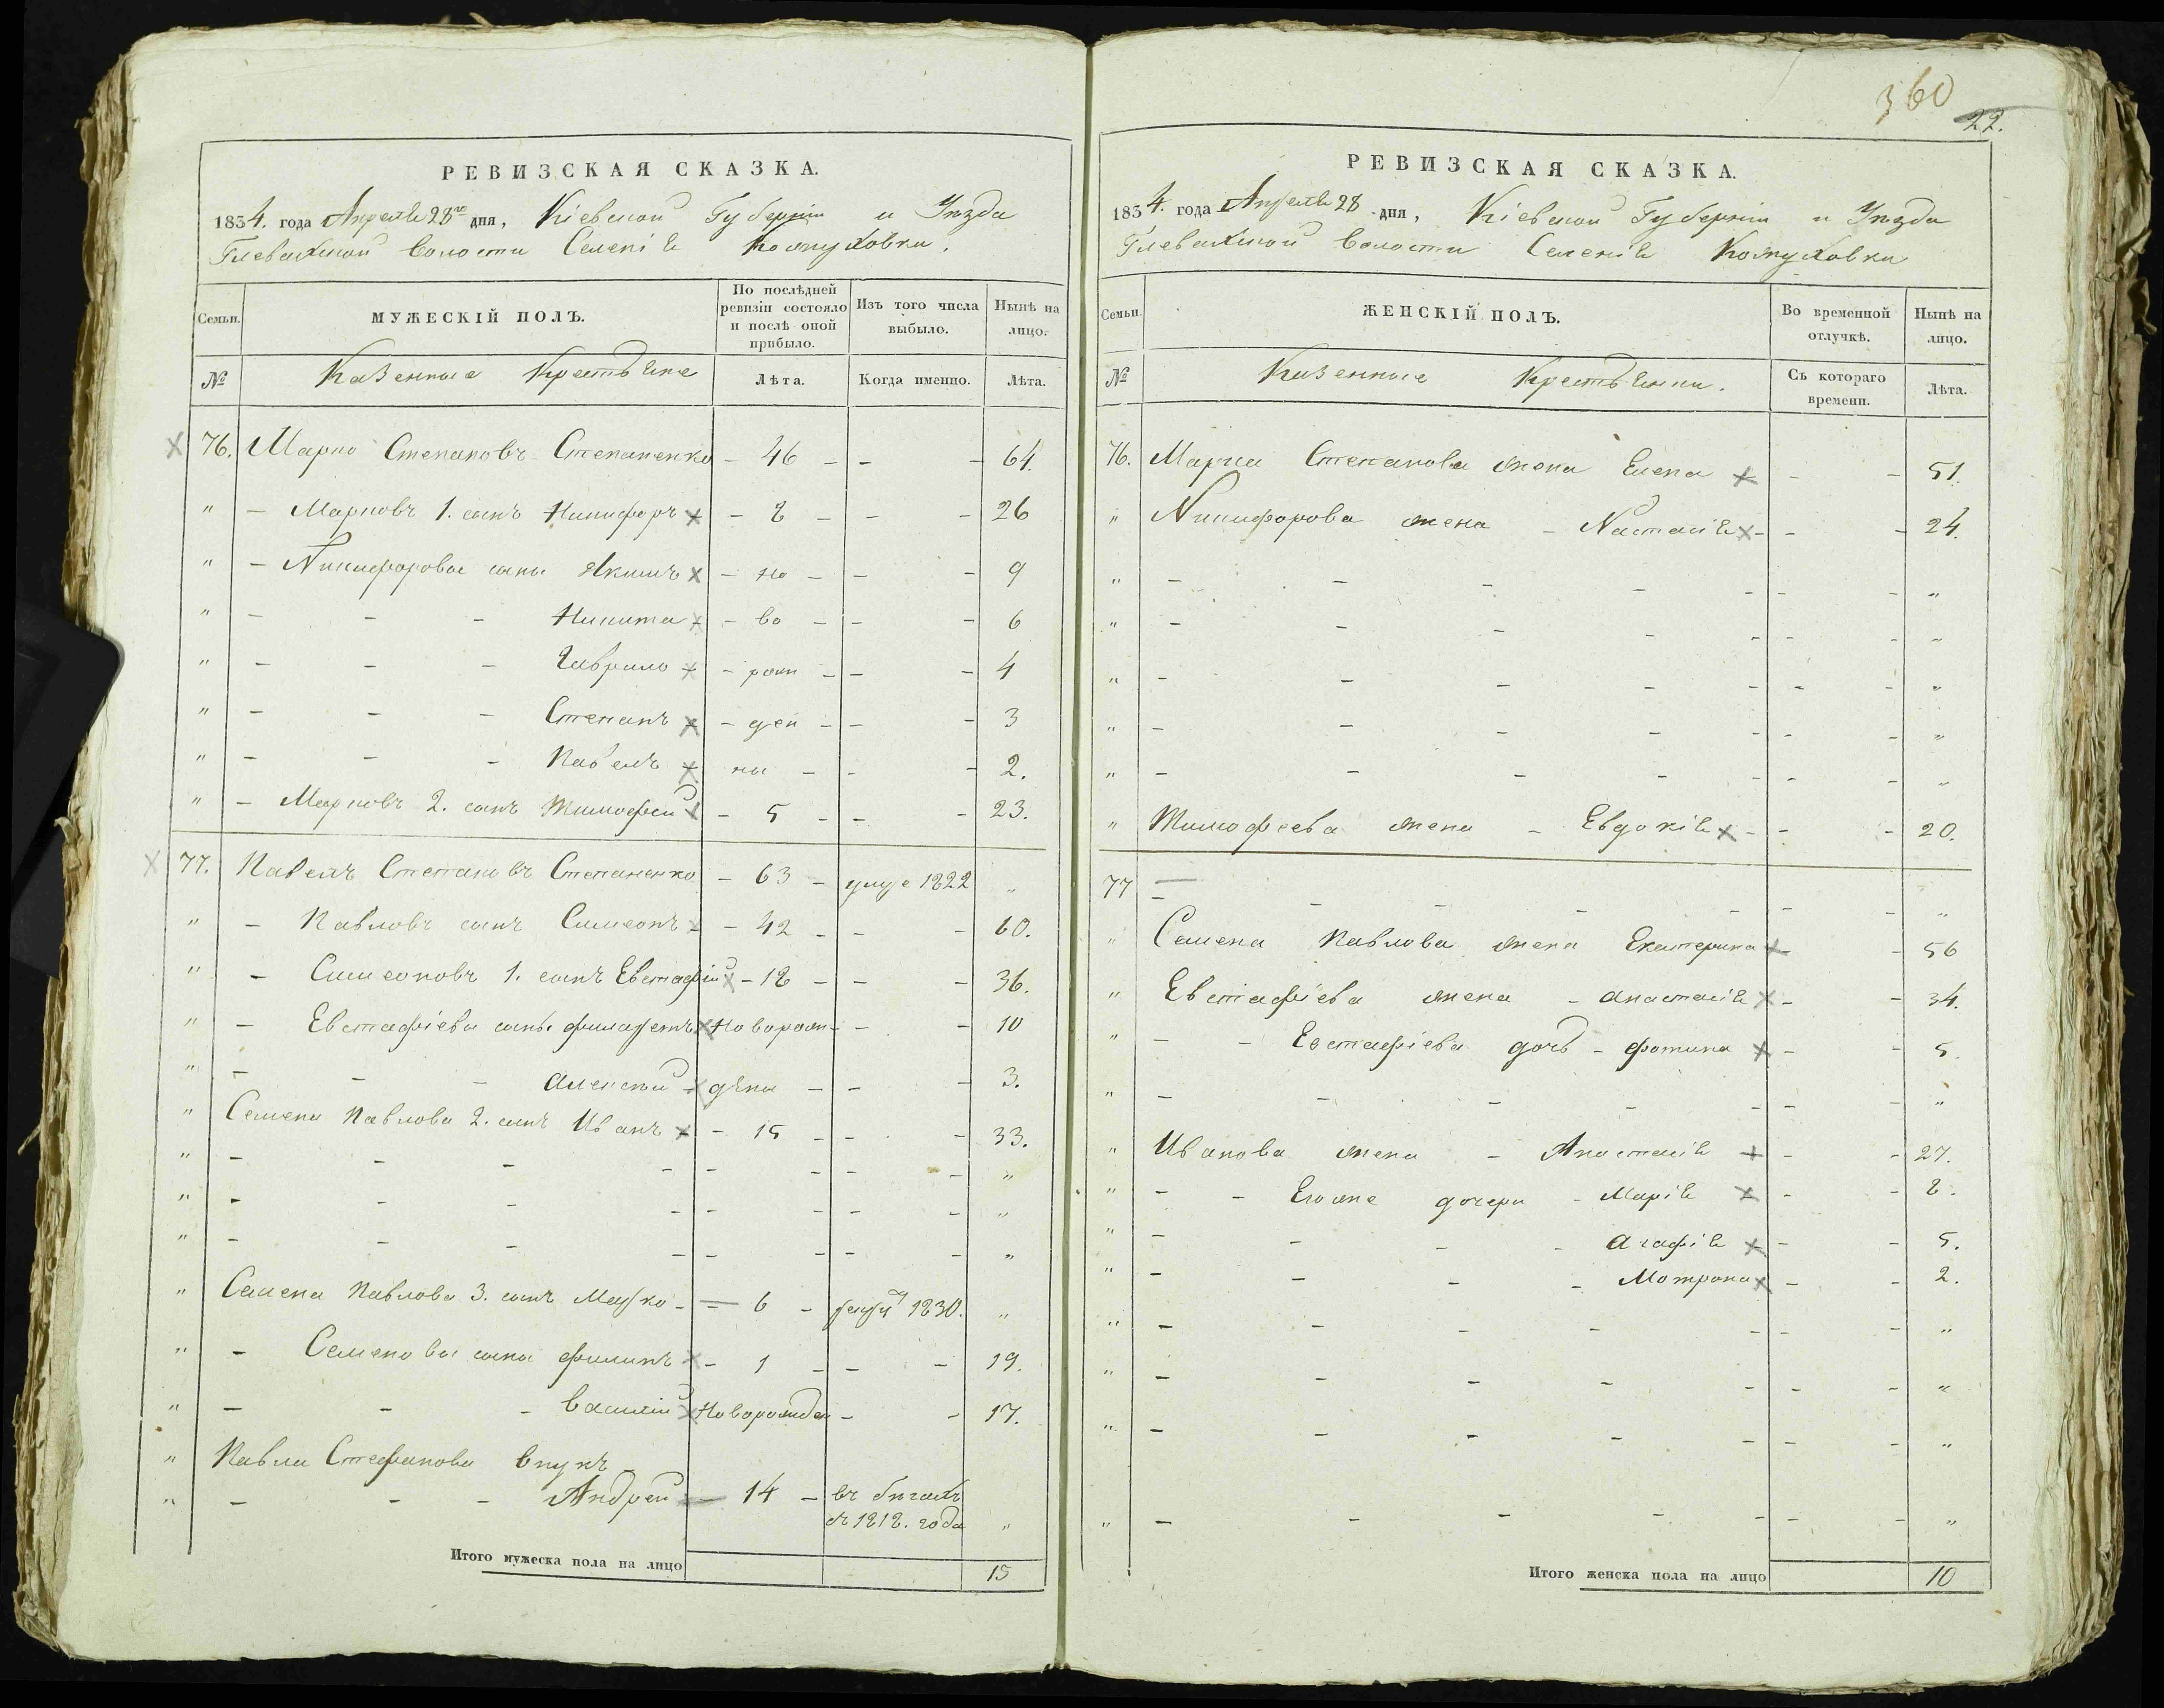 360
22.
РЕВИЗСКАЯ СКАЗКА.
1834. года Апреля 28го дня, Кіевской Губерніи и Уѣзда
Глевахской волости Селенія Кожуховки.
Семьи.
МУЖЕСКІЙ ПОЛЪ.
По послѣдней ревизіи состояло и послѣ оной прибыло.
Изъ того числа выбыло.
Нынѣ на лицо.
№ Казенные Крестьяне Лѣта. Когда именно. Лѣта.
76. Марко Степановъ Степаненко - 46 - - - 64.
" - Марковъ 1. сынъ Никифоръ - 8 - - - 26
" - Никифоровы сыны Якимъ - но - - - 9
" - - - Никита - во - - - 6
" - - - Гаврило - рож - - - 4
" - - - Степанъ - ден - - - 3
" - - - Павелъ ны - - - 2.
" - Марковъ 2. сынъ Тимофей - 5 - - - 23.
77. Павелъ Степановъ Степаненко - 63 - умре 1822 "
" - Павловъ сынъ Симеонъ - 42 - - - 60.
" - Симеоновъ 1. сынъ Евстафій - 18 - - - 36.
" - Евстафіевы сыны Филаретъ Новорож- - - 10
" - - - Алексѣй дены - - - 3.
" Семена Павлова 2. сынъ Иванъ - 15 - - - 33.
" - - - - - - - - "
" - - - - - - - - "
" - - - - - - - - "
" Семена Павлова 3. сынъ Марко - - 6 - рекру 1830. "
" - Семеновы сыны Филипъ - 1 - - - 19.
" - - - Василій Новорожден - - 17.
" Павла Стефанова внукъ
" - - - Андрей - 14 - въ бѣгахъ
съ 1818. года "
Итого мужеска пола на лицо 15
РЕВИЗСКАЯ СКАЗКА.
1834. года Апреля 28 дня, Кіевской Губерніи и Уѣзда
Глевахской волости Селенія Кожуховки
Семьи.
ЖЕНСКІЙ ПОЛЪ.
Во временной отлучкѣ.
Нынѣ на лицо.
№ Казенные Крестьянки. Съ котораго времени. Лѣта.
76. Марка Степанова жена Елена - - 51.
" Никифорова жена - Настасія - - - 24.
" - - - - - - - "
" - - - - - - - "
" - - - - - - - "
" - - - - - - - "
" - - - - - - - "
" Тимофеева жена - Евдокія - - - 20.
77 - - - - - - - "
" Семена Павлова жена Екатерина - 56
" Евстафіева жена - Анастасія - - 34.
" - - Евстафіева дочь - Фотина - - 5.
" - - - - - - - "
" Иванова жена - Анастасія - - 27.
" - - Егоже дочери - Марія - - 8.
" - - - - Агафія - - 5.
" - - - - Мотрона - - 2.
" - - - - - - - "
" - - - - - - - "
" - - - - - - - "
" - - - - - - - "
Итого женска пола на лицо 10